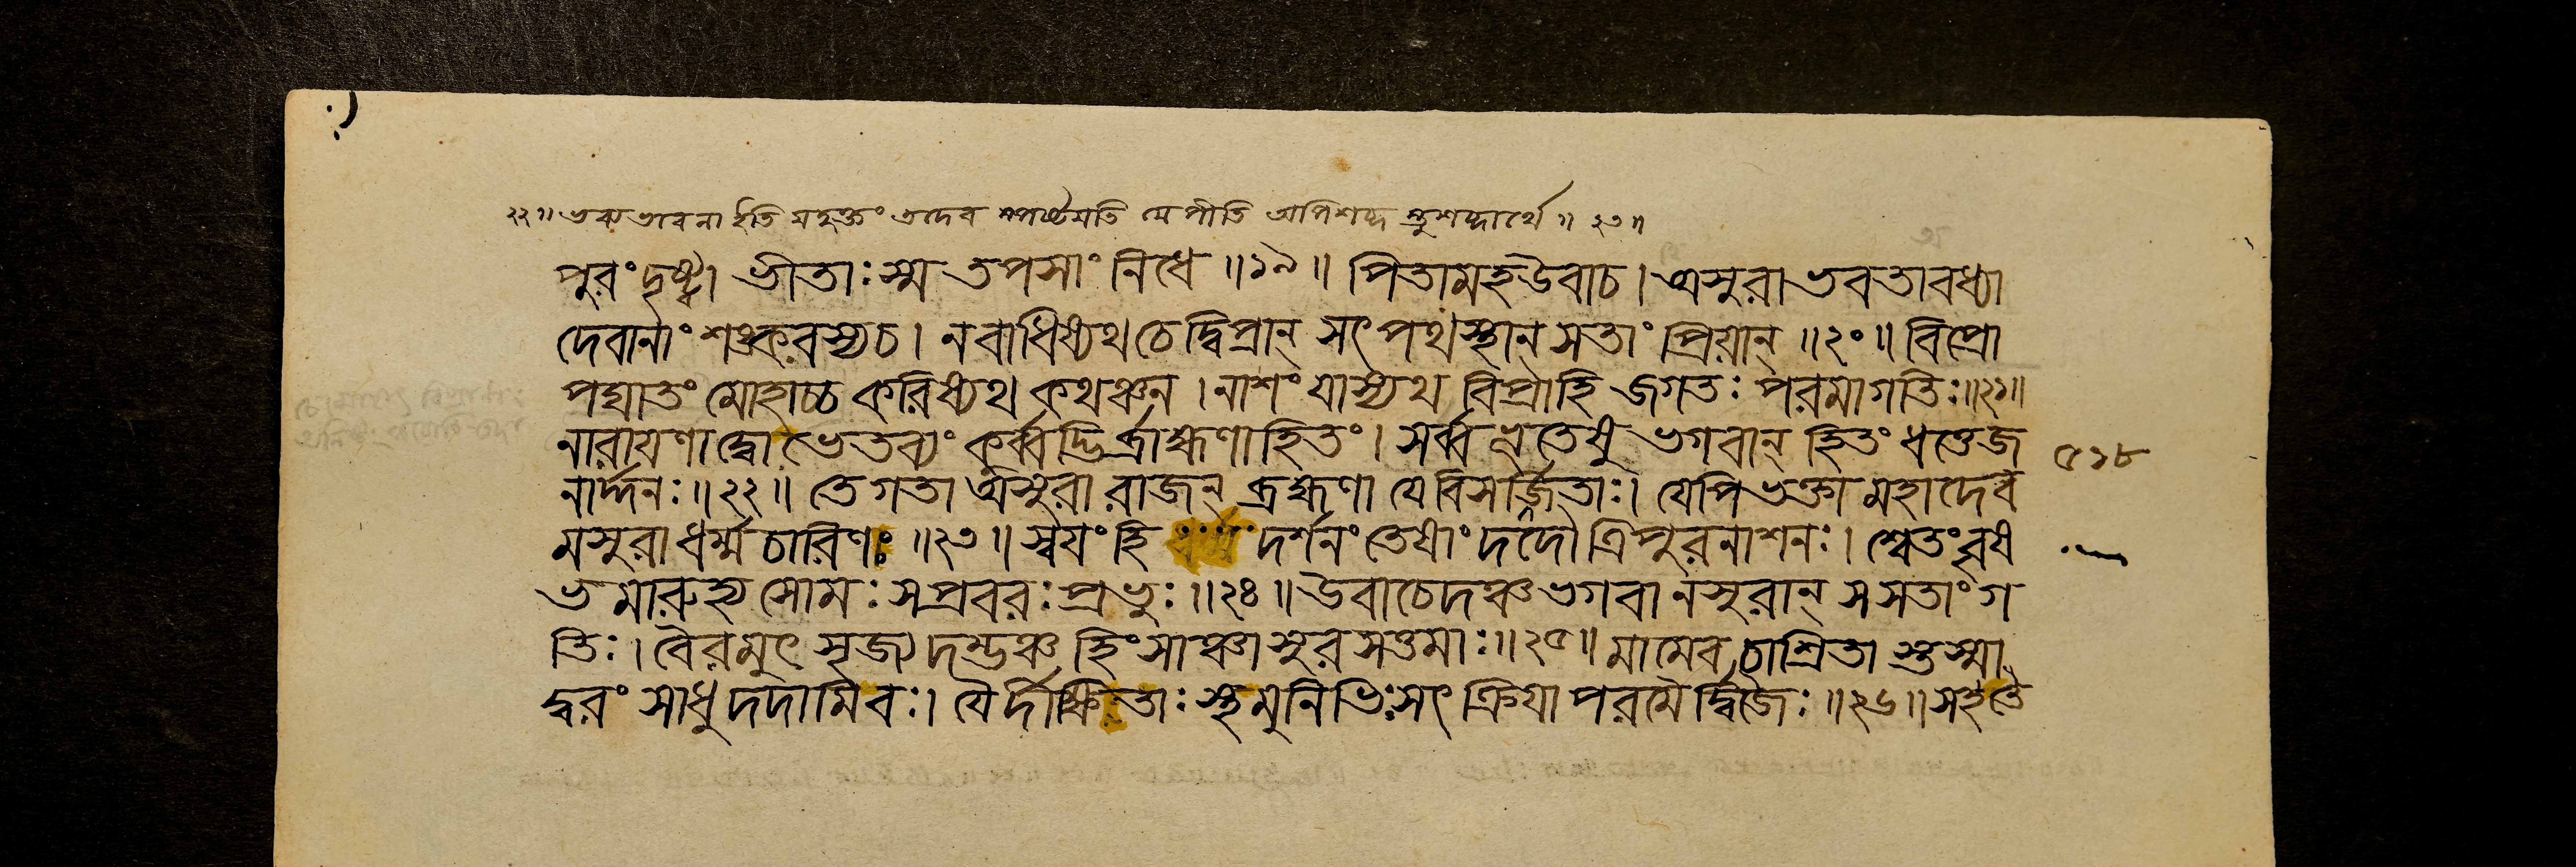 ২২॥ ভক্তভাবনা ইতি যদুক্তং তদেব স্পষ্টয়তি যে পীতি অপিশব্দ স্তুশব্দার্থে॥ ২৩॥
পুরং দৃষ্ট্বা ভীতাঃ স্ম তপসাং নিধে ॥১৯॥ পিতামহ উবাচ। অসুরা ভবতাবধ্যা
দেবানাং শঙ্করস্য চ। ন বাধিষ্যথ চেদ্বিপ্রান্ সৎপথস্থান্ সতাং প্রিয়ান্ ॥২০॥ বিপ্রো
পঘাতং মোহাচ্চ করিষ্যথ কথঞ্চন। নাশং যাস্যথ বিপ্রা হি জগতঃ পরমা গতিঃ॥২১॥
নারায়ণাদ্বো ভেতব্যং কুর্ব্বদ্ভির্ব্রাহ্মণাহিতং। সর্ব্বভূতেষু ভগবান্ হিতং ধত্তে জ
নার্দ্দনঃ॥২২॥ তে গতা অসুরা রাজন্ ব্রহ্মণা যে বিসর্জ্জিতাঃ। যেপি ভক্তা মহাদেব
মসুরা ধর্ম্মচারিণঃ ॥২৩॥ স্বয়ং হি দর্শনং তেষাং দদৌ ত্রিপুরনাশনঃ। শ্বেতং বৃষ
ভমারুহ্য সোমঃ সপ্রবরঃ প্রভুঃ॥২৪॥ উবাচেদঞ্চ ভগবানসুরান্ স সতাং গ
তিঃ। বৈরমুৎসৃজ্য দম্ভঞ্চ হিংসাঞ্চাসুরসত্তমাঃ॥২৫॥ মামেব চাশ্রিতা স্তস্মা
দ্বরং সাধু দদামি বঃ। যৈর্দীক্ষিতাঃ স্থ মুনিভিঃ সৎক্রিয়াপরমৈর্দ্বিজৈঃ॥২৬॥ সহ তৈ
৫১৮